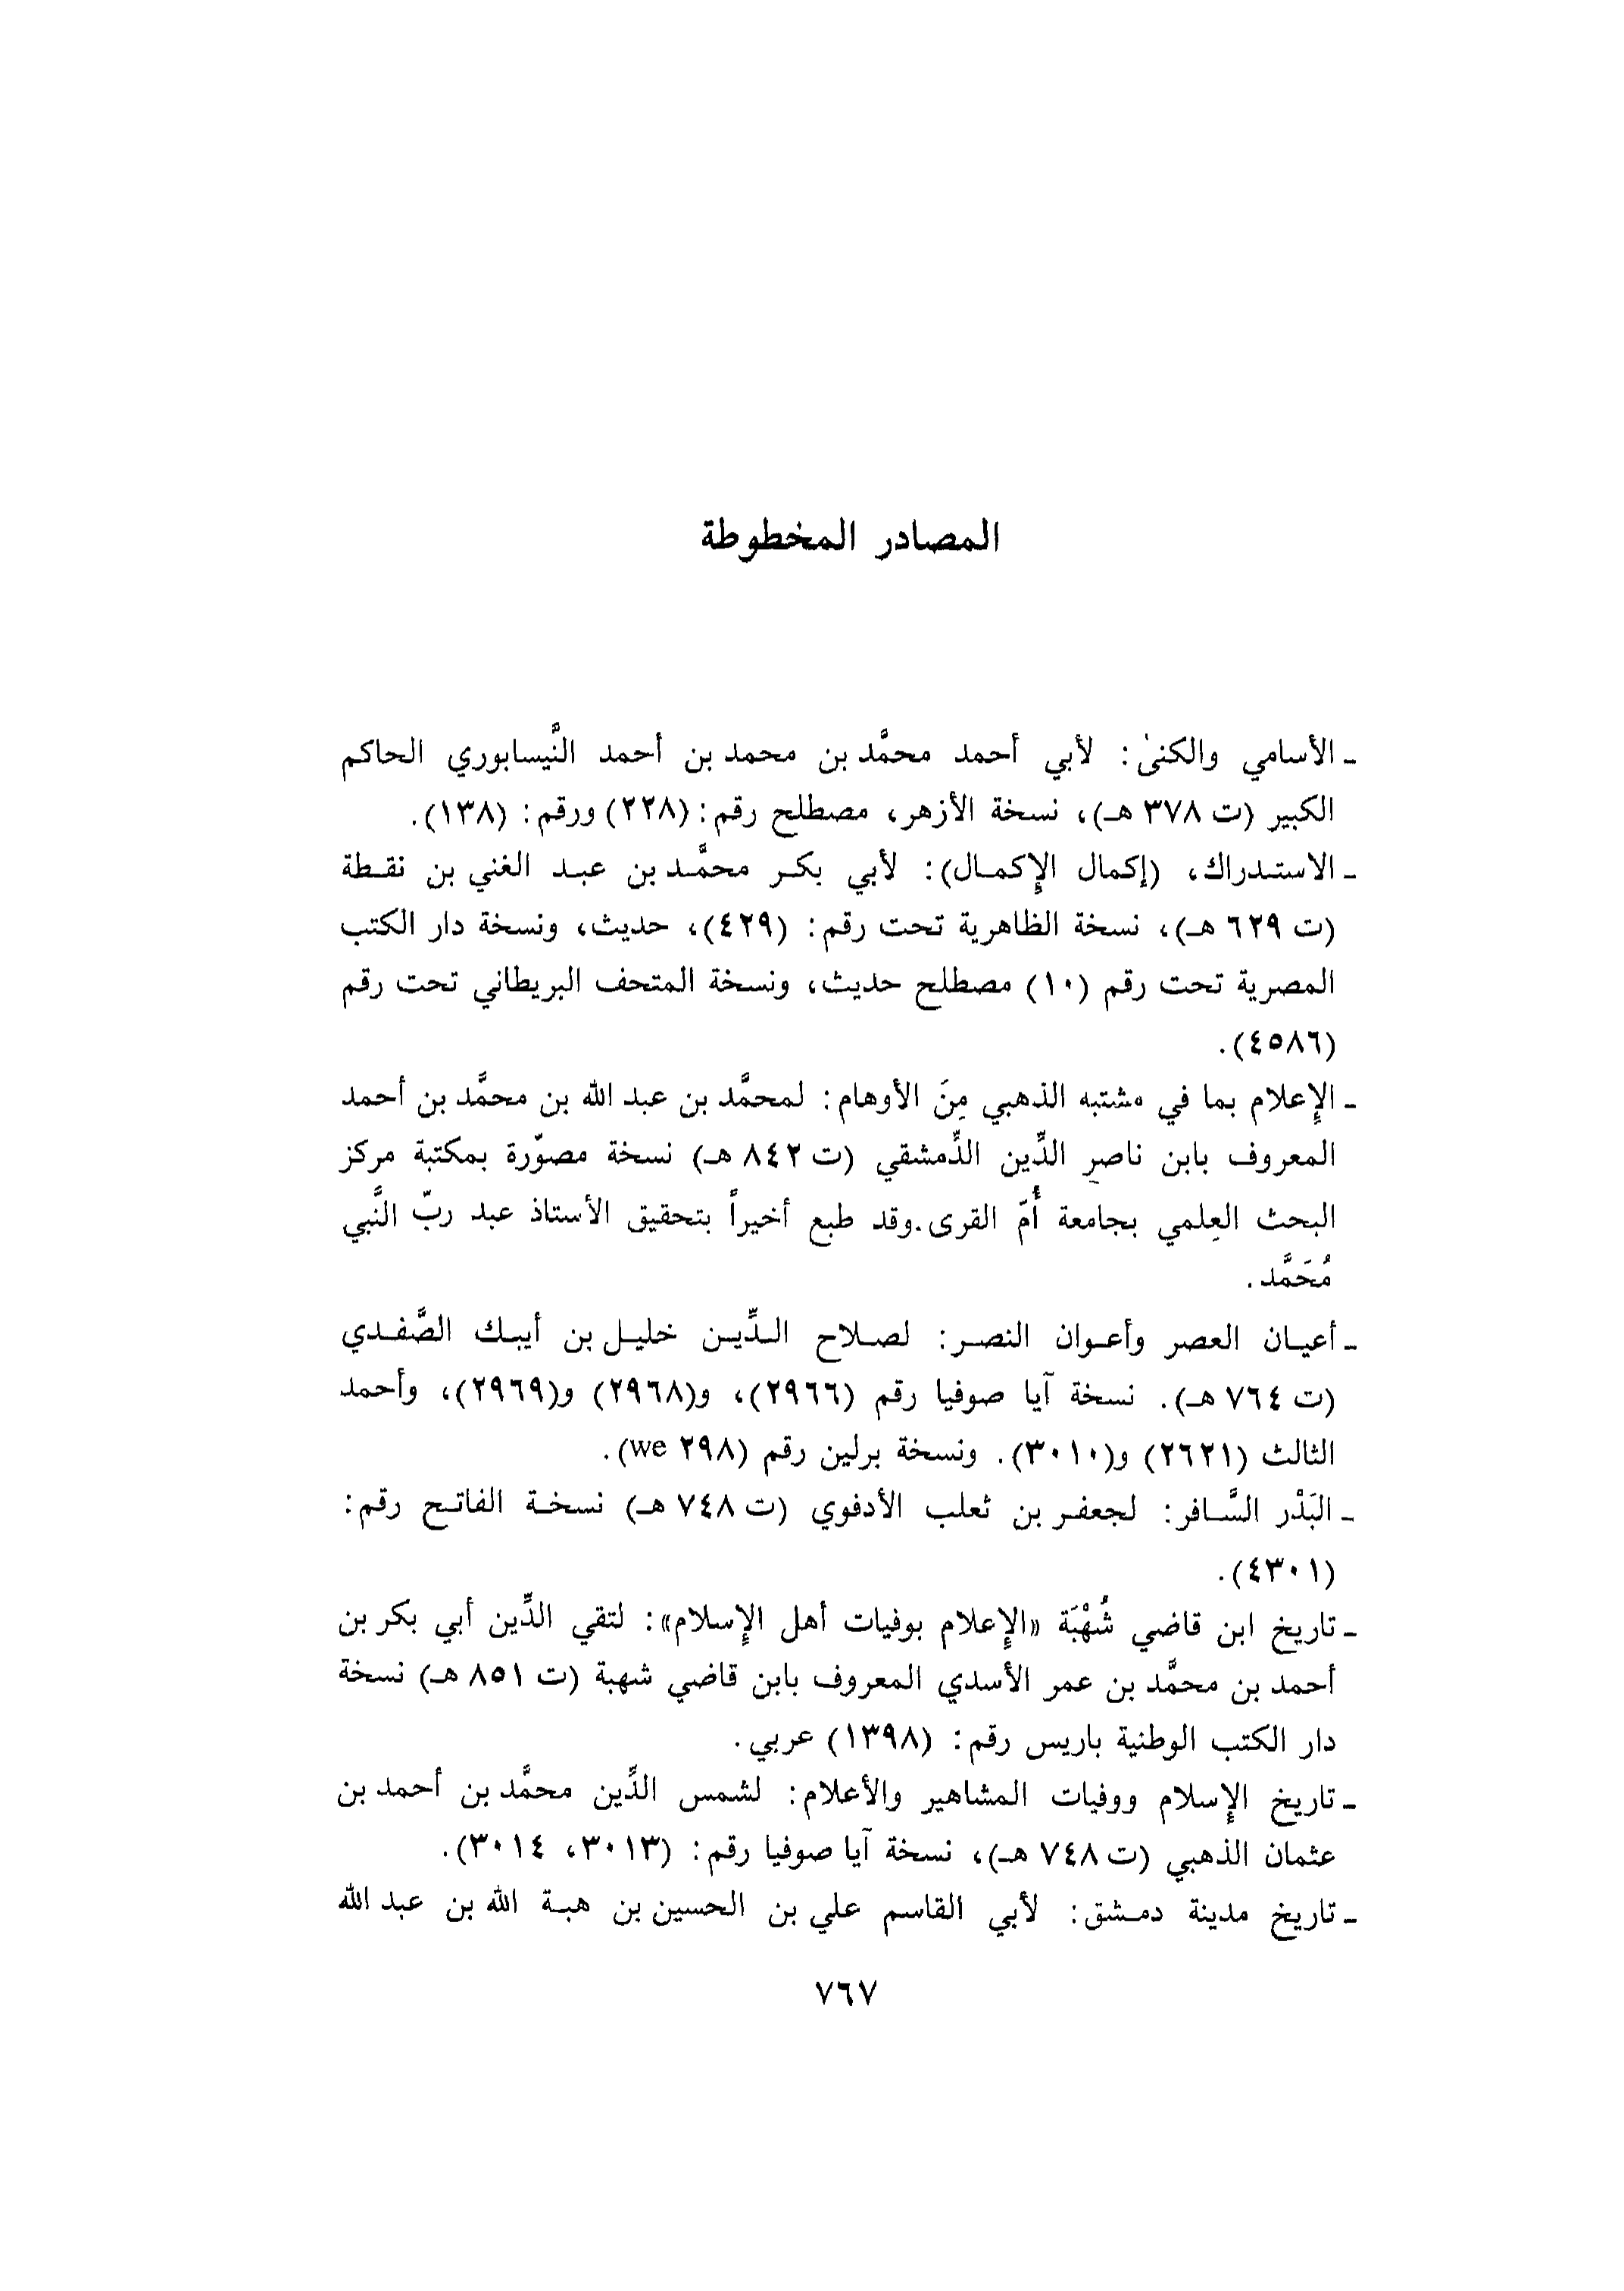 المصادر المخطوطة
ـ الأسامي والكنىٰ: لأبي أحمد محمَّد بن محمد بن أحمد النَّيسابوري الحاكم
الكبير (ت ٣٧٨ هـ)، نسخة الأزهر، مصطلح رقم: (٢٢٨) ورقم: (١٣٨).
ـ الاستدراك، (إكمال الإكمال): لأبي بكر محمَّد بن عبد الغني بن نقطة
(ت ٦٢٩ هـ)، نسخة الظاهرية تحت رقم: (٤٢٩)، حديث، ونسخة دار الكتب
المصرية تحت رقم (١٠) مصطلح حديث، ونسخة المتحف البريطاني تحت رقم
(٤٥٨٦).
ـ الإعلام بما في مشتبه الذهبي مِنَ الأوهام: لمحمَّد بن عبد الله بن محمَّد بن أحمد
المعروف بابن ناصر الدِّين الدِّمشقي (ت ٨٤٢ هـ) نسخة مصوّرة بمكتبة مركز
البحث العِلمي بجامعة أُمّ القرى. وقد طبع أخيراً بتحقيق الأستاذ عبد ربّ النَّبي
مُحَمَّد.
ـ أعيان العصر وأعوان النصر: لصلاح الدِّين خليل بن أيبك الصَّفدي
(ت ٧٦٤ هـ). نسخة آيا صوفيا رقم (٢٩٦٦)، و(٢٩٦٨) و(٢٩٦٩)، وأحمد
الثالث (٢٦٢١) و(٣٠١٠). ونسخة برلين رقم (٢٩٨ we).
ـ البَدْر السَّافر: لجعفر بن ثعلب الأدفوي (ت ٧٤٨ هـ) نسخة الفاتح رقم:
(٤٣٠١).
ـ تاريخ ابن قاضي شُهْبَة «الإعلام بوفيات أهل الإسلام»: لتقي الدِّين أبي بكر بن
أحمد بن محمَّد بن عمر الأسدي المعروف بابن قاضي شهبة (ت ٨٥١ هـ) نسخة
دار الكتب الوطنية باريس رقم: (١٣٩٨) عربي.
ـ تاريخ الإسلام ووفيات المشاهير والأعلام: لشمس الدِّين محمَّد بن أحمد بن
عثمان الذهبي (ت ٧٤٨ هـ)، نسخة آيا صوفيا رقم: (٣٠١٣، ٣٠١٤).
ـ تاريخ مدينة دمشق: لأبي القاسم علي بن الحسين بن هبة الله بن عبد الله
٧٦٧